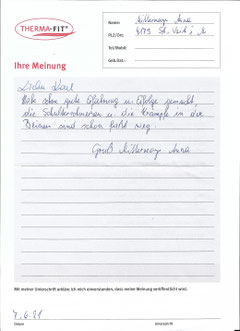 THERMA-FIT®
Name: Anna
PLZ/Ort: St. Veit i.
Tel/Mobil:
Geb.Dat.:
Ihre Meinung
Habe schon gute Erfahrung u. Erfolge gemacht,
die Schulterschmerzen u. die Krämpfe in den
Beinen sind schon fast weg!
Gruß Anna
Mit meiner Unterschrift erkläre ich mich einverstanden, dass meine Meinung veröffentlicht wird.
7.6.21
Datum Unterschrift